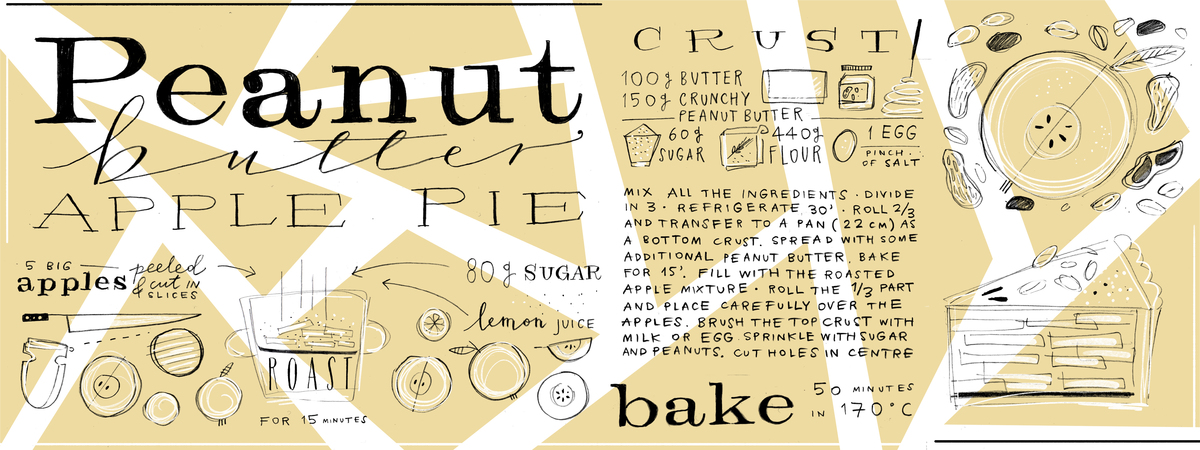 Peanut
butter
APPLE PIE
5 BIG
apples
peeled
& cut IN
SLICES
80g SUGAR
lemon JUICE
ROAST
FOR 15 MINUTES
CRUST
100g BUTTER
150g CRUNCHY
PEANUT BUTTER
60g
SUGAR
440g
FLOUR
1 EGG
PINCH
OF SALT
MIX ALL THE INGREDIENTS · DIVIDE
IN 3 · REFRIGERATE 30' · ROLL 2/3
AND TRANSFER TO A PAN (22 cm) AS
A BOTTOM CRUST. SPREAD WITH SOME
ADDITIONAL PEANUT BUTTER. BAKE
FOR 15'. FILL WITH THE ROASTED
APPLE MIXTURE · ROLL THE 1/3 PART
AND PLACE CAREFULLY OVER THE
APPLES. BRUSH THE TOP CRUST WITH
MILK OR EGG. SPRINKLE WITH SUGAR
AND PEANUTS. CUT HOLES IN CENTRE
bake
50 MINUTES
IN 170°C